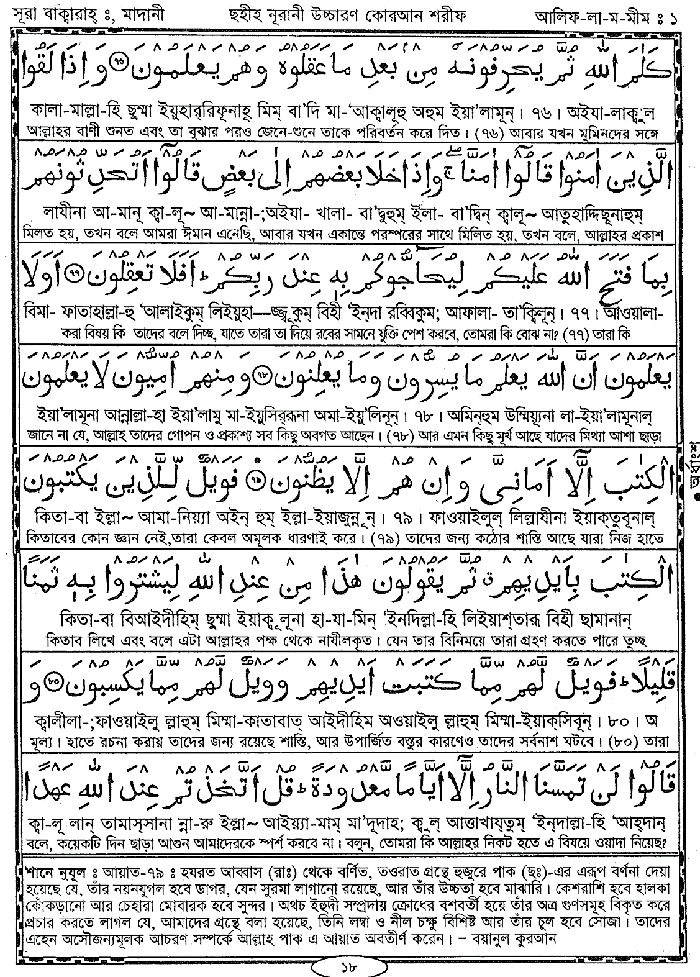 সূরা বাক্বারাহ্ ঃ, মাদানী
ছহীহ্ নূরানী উচ্চারণ কোরআন শরীফ
আলিফ-লা-ম-মীম ঃ ১
كَلٰمَ اللّٰهِ ثُمَّ يُحَرِّفُوْنَهٗ مِنْۢ بَعْدِ مَا عَقَلُوْهُ وَهُمْ يَعْلَمُوْنَ ۝৭৫ وَاِذَا لَقُوا
কালা-মাল্লা-হি ছুম্মা ইয়ুহার্‌রিফূনাহূ মিম্ বা'দি মা-'আক্বালূহু অহুম ইয়া'লামূন্। ৭৬। অইযা-লাক্বুল
আল্লাহর বাণী শুনত এবং তা বুঝার পরও জেনে-শুনে তাকে পরিবর্তন করে দিত। (৭৬) আবার যখন মুমিনদের সঙ্গে
الَّذِيْنَ اٰمَنُوْا قَالُوْۤا اٰمَنَّا ۖۚ وَاِذَا خَلَا بَعْضُهُمْ اِلٰى بَعْضٍ قَالُوْۤا اَتُحَدِّثُوْنَهُمْ
লাযীনা আ-মানূ ক্বা-লূ~ আ-মান্না-;অইযা- খালা- বা'দ্বুহুম্ ইলা- বা'দ্বিন্ ক্বালূ~ আতুহাদ্দিছূনাহুম্
মিলিত হয়, তখন বলে আমরা ঈমান এনেছি, আবার যখন একান্তে পরস্পরের সাথে মিলিত হয়, তখন বলে, আল্লাহর প্রকাশ
بِمَا فَتَحَ اللّٰهُ عَلَيْكُمْ لِيُحَآجُّوْكُمْ بِهٖ عِنْدَ رَبِّكُمْ ؕ اَفَلَا تَعْقِلُوْنَ ۝৭৬ اَوَلَا
বিমা- ফাতাহাল্লা-হু 'আলাইকুম্ লিইয়ুহা—জ্জূকুম্ বিহী 'ইন্দা রব্বিকুম; আফালা- তা'ক্বিলূন্। ৭৭। আওয়ালা-
করা বিষয় কি তাদের বলে দিচ্ছ, যাতে তারা তা দিয়ে রবের সামনে যুক্তি পেশ করবে, তোমরা কি বোঝ না? (৭৭) তারা কি
يَعْلَمُوْنَ اَنَّ اللّٰهَ يَعْلَمُ مَا يُسِرُّوْنَ وَمَا يُعْلِنُوْنَ ۝৭৭ وَمِنْهُمْ اُمِّيُّوْنَ لَا يَعْلَمُوْنَ
ইয়া'লামূনা আন্নাল্লা-হা ইয়া'লামু মা-ইয়ুসির্‌রূনা অমা-ইয়ু'লিনূন্। ৭৮। অমিন্‌হুম উম্মিয়্যূনা লা-ইয়া'লামূনাল্
জানে না যে, আল্লাহ তাদের গোপন ও প্রকাশ্য সব কিছু অবগত আছেন। (৭৮) আর এমন কিছু মূর্খ আছে যাদের মিথ্যা আশা ছাড়া
الْكِتٰبَ اِلَّاۤ اَمَانِيَّ وَاِنْ هُمْ اِلَّا يَظُنُّوْنَ ۝৭৮ فَوَيْلٌ لِّلَّذِيْنَ يَكْتُبُوْنَ
কিতা-বা ইল্লা~ আমা-নিয়্যা অইন্ হুম্ ইল্লা-ইয়াজুন্নূন্। ৭৯। ফাওয়াইলুল্ লিল্লাযীনা ইয়াক্‌তুবূনাল্
কিতাবের কোন জ্ঞান নেই,তারা কেবল অমূলক ধারণাই করে। (৭৯) তাদের জন্য কঠোর শাস্তি আছে যারা নিজ হাতে
الْكِتٰبَ بِاَيْدِيْهِمْ ۗ ثُمَّ يَقُوْلُوْنَ هٰذَا مِنْ عِنْدِ اللّٰهِ لِيَشْتَرُوْا بِهٖ ثَمَنًا
কিতা-বা বিআইদীহিম্ ছুম্মা ইয়াকূলূনা হা-যা-মিন্ 'ইন্দিল্লা-হি লিইয়াশ্‌তারূ বিহী ছামানান্
কিতাব লিখে এবং বলে এটা আল্লাহর পক্ষ থেকে নাযীলকৃত। যেন তার বিনিময়ে তারা গ্রহণ করতে পারে তুচ্ছ
قَلِيْلًا ؕ فَوَيْلٌ لَّهُمْ مِّمَّا كَتَبَتْ اَيْدِيْهِمْ وَوَيْلٌ لَّهُمْ مِّمَّا يَكْسِبُوْنَ ۝৭৯ وَ
ক্বালীলা-;ফাওয়াইলু ল্লাহুম্ মিম্মা-কাতাবাত্ আইদীহিম্ অওয়াইলু ল্লাহুম্ মিম্মা-ইয়াক্‌সিবূন্। ৮০। অ
মূল্য। হাতে রচনা করায় তাদের জন্য রয়েছে শাস্তি, আর উপার্জিত বস্তুর কারণেও তাদের সর্বনাশ ঘটবে। (৮০) তারা
قَالُوْا لَنْ تَمَسَّنَا النَّارُ اِلَّاۤ اَيَّامًا مَّعْدُوْدَةً ؕ قُلْ اَتَّخَذْتُمْ عِنْدَ اللّٰهِ عَهْدًا
ক্বা-লূ লান্ তামাস্‌সানা ন্না-রু ইল্লা~ আইয়্যা-মাম্ মা'দূদাহ্; ক্বুল্ আত্তাখায্‌তুম্ 'ইন্দাল্লা-হি 'আহ্‌দান্
বলে, কয়েকটি দিন ছাড়া আগুন আমাদেরকে স্পর্শ করবে না। বলুন, তোমরা কি আল্লাহর নিকট হতে এ বিষয়ে ওয়াদা নিয়েছ?
শানে নুযূল ঃ আয়াত-৭৯ ঃ হযরত আব্বাস (রাঃ) থেকে বর্ণিত, তওরাত গ্রন্থে হুজুরে পাক (ছঃ)-এর এরূপ বর্ণনা দেয়া
হয়েছে যে, তাঁর নয়নযুগল হবে ডাগর, যেন সুরমা লাগানো রয়েছে, আর তাঁর উচ্চতা হবে মাঝারি। কেশরাশি হবে হালকা
কোঁকড়ানো আর চেহারা মোবারক হবে সুন্দর। অথচ ইহুদী সম্প্রদায় ক্রোধের বশবর্তী হয়ে তাঁর অত্র গুণসমূহ বিকৃত করে
প্রচার করতে লাগল যে, আমাদের গ্রন্থে বলা হয়েছে, তিনি লম্বা ও নীল চক্ষু বিশিষ্ট আর তাঁর চুল হবে সোজা। তাদের
এহেন অসৌজন্যমূলক আচরণ সম্পর্কে আল্লাহ পাক এ আয়াত অবতীর্ণ করেন। – বয়ানুল কুরআন
১৮